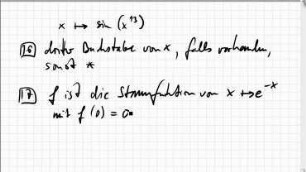 x ↦ sin (x¹³)
16 dritter Buchstabe von x, falls vorhanden,
sonst *
17 f ist die Stammfunktion von x ↦ e^-x
mit f(0) =